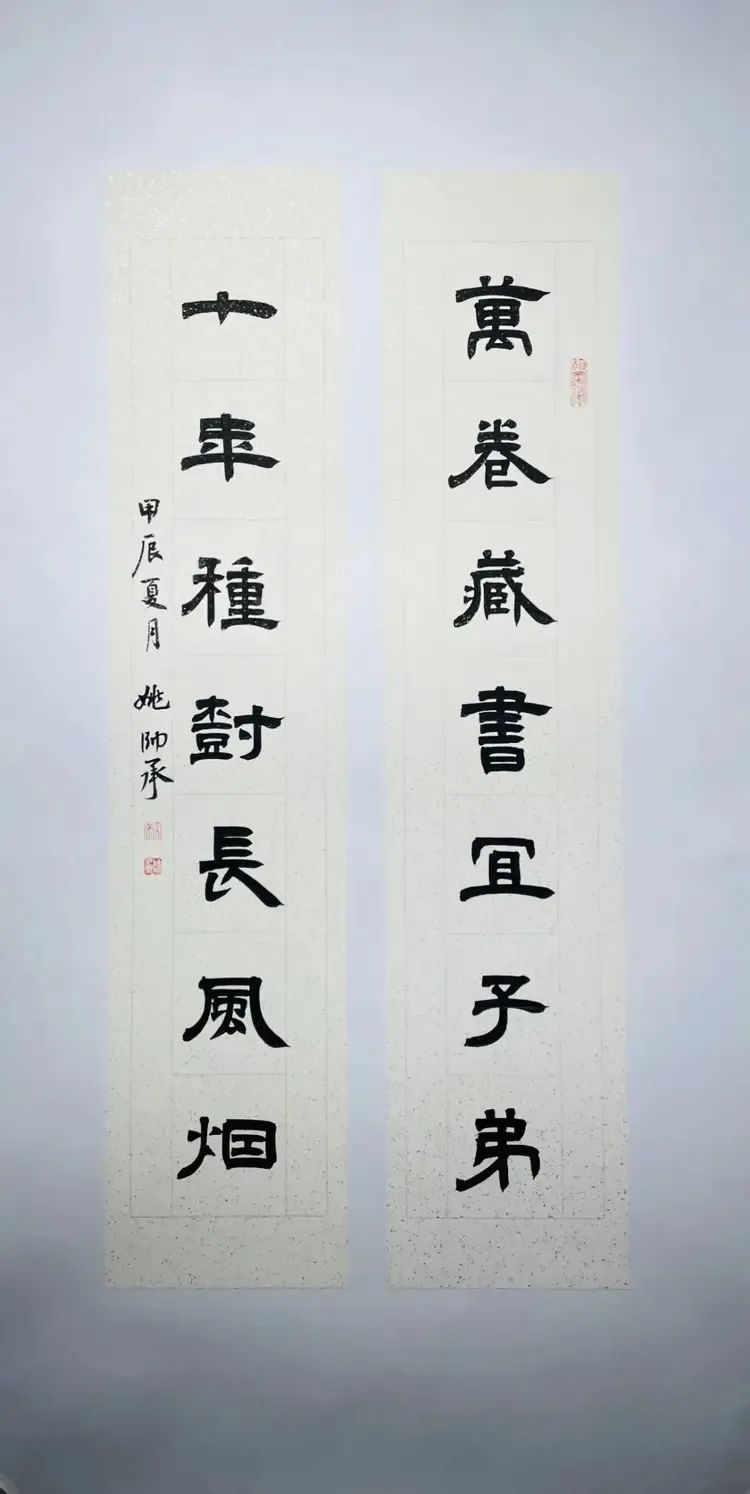 萬卷藏書宜子弟
十年種樹長風烟
甲辰夏月 姚帥承